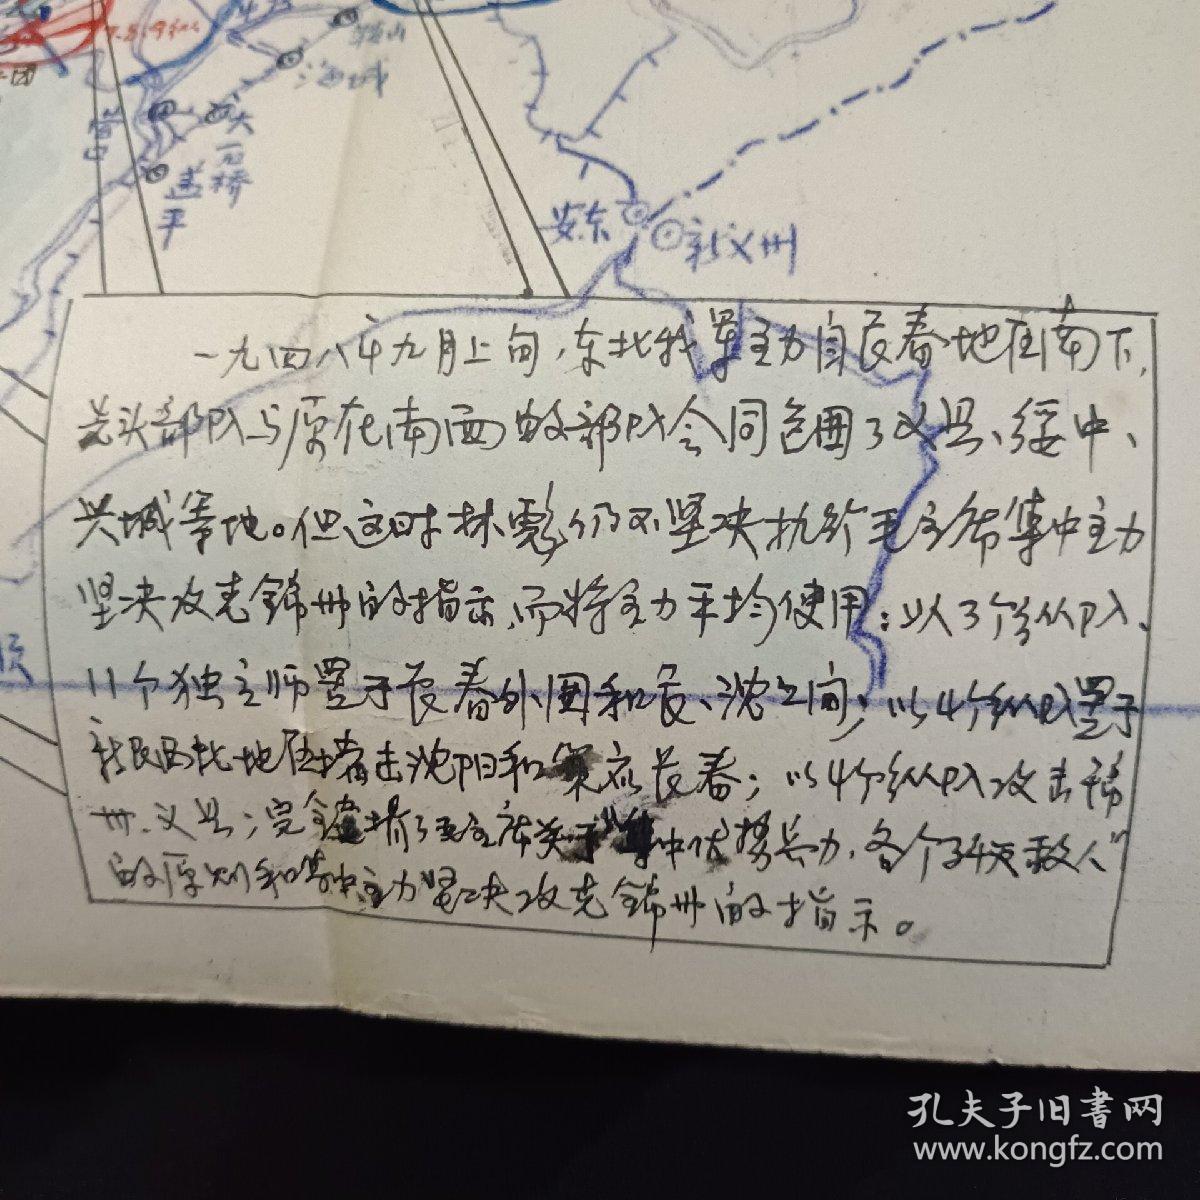 7.8.9纵
团
鞍山
海城
营口
大石桥
盖平
安东
新义州
一九四八年九月上旬，东北我军主力自长春地区南下，
先头部队与原在南面的部队会同包围了义县、绥中、
兴城等地。但这时林彪仍不坚决执行毛主席集中主力
坚决攻克锦州的指示，而将主力平均使用：以3个纵队、
11个独立师置于长春外围和长、沈之间；以4个纵队置于
新民西北地区堵击沈阳和策应长春；以4个纵队攻击锦
州、义县；完全违背了毛主席关于“集中优势兵力，各个歼灭敌人”
的原则和集中主力坚决攻克锦州的指示。
孔夫子旧书网
www.kongfz.com